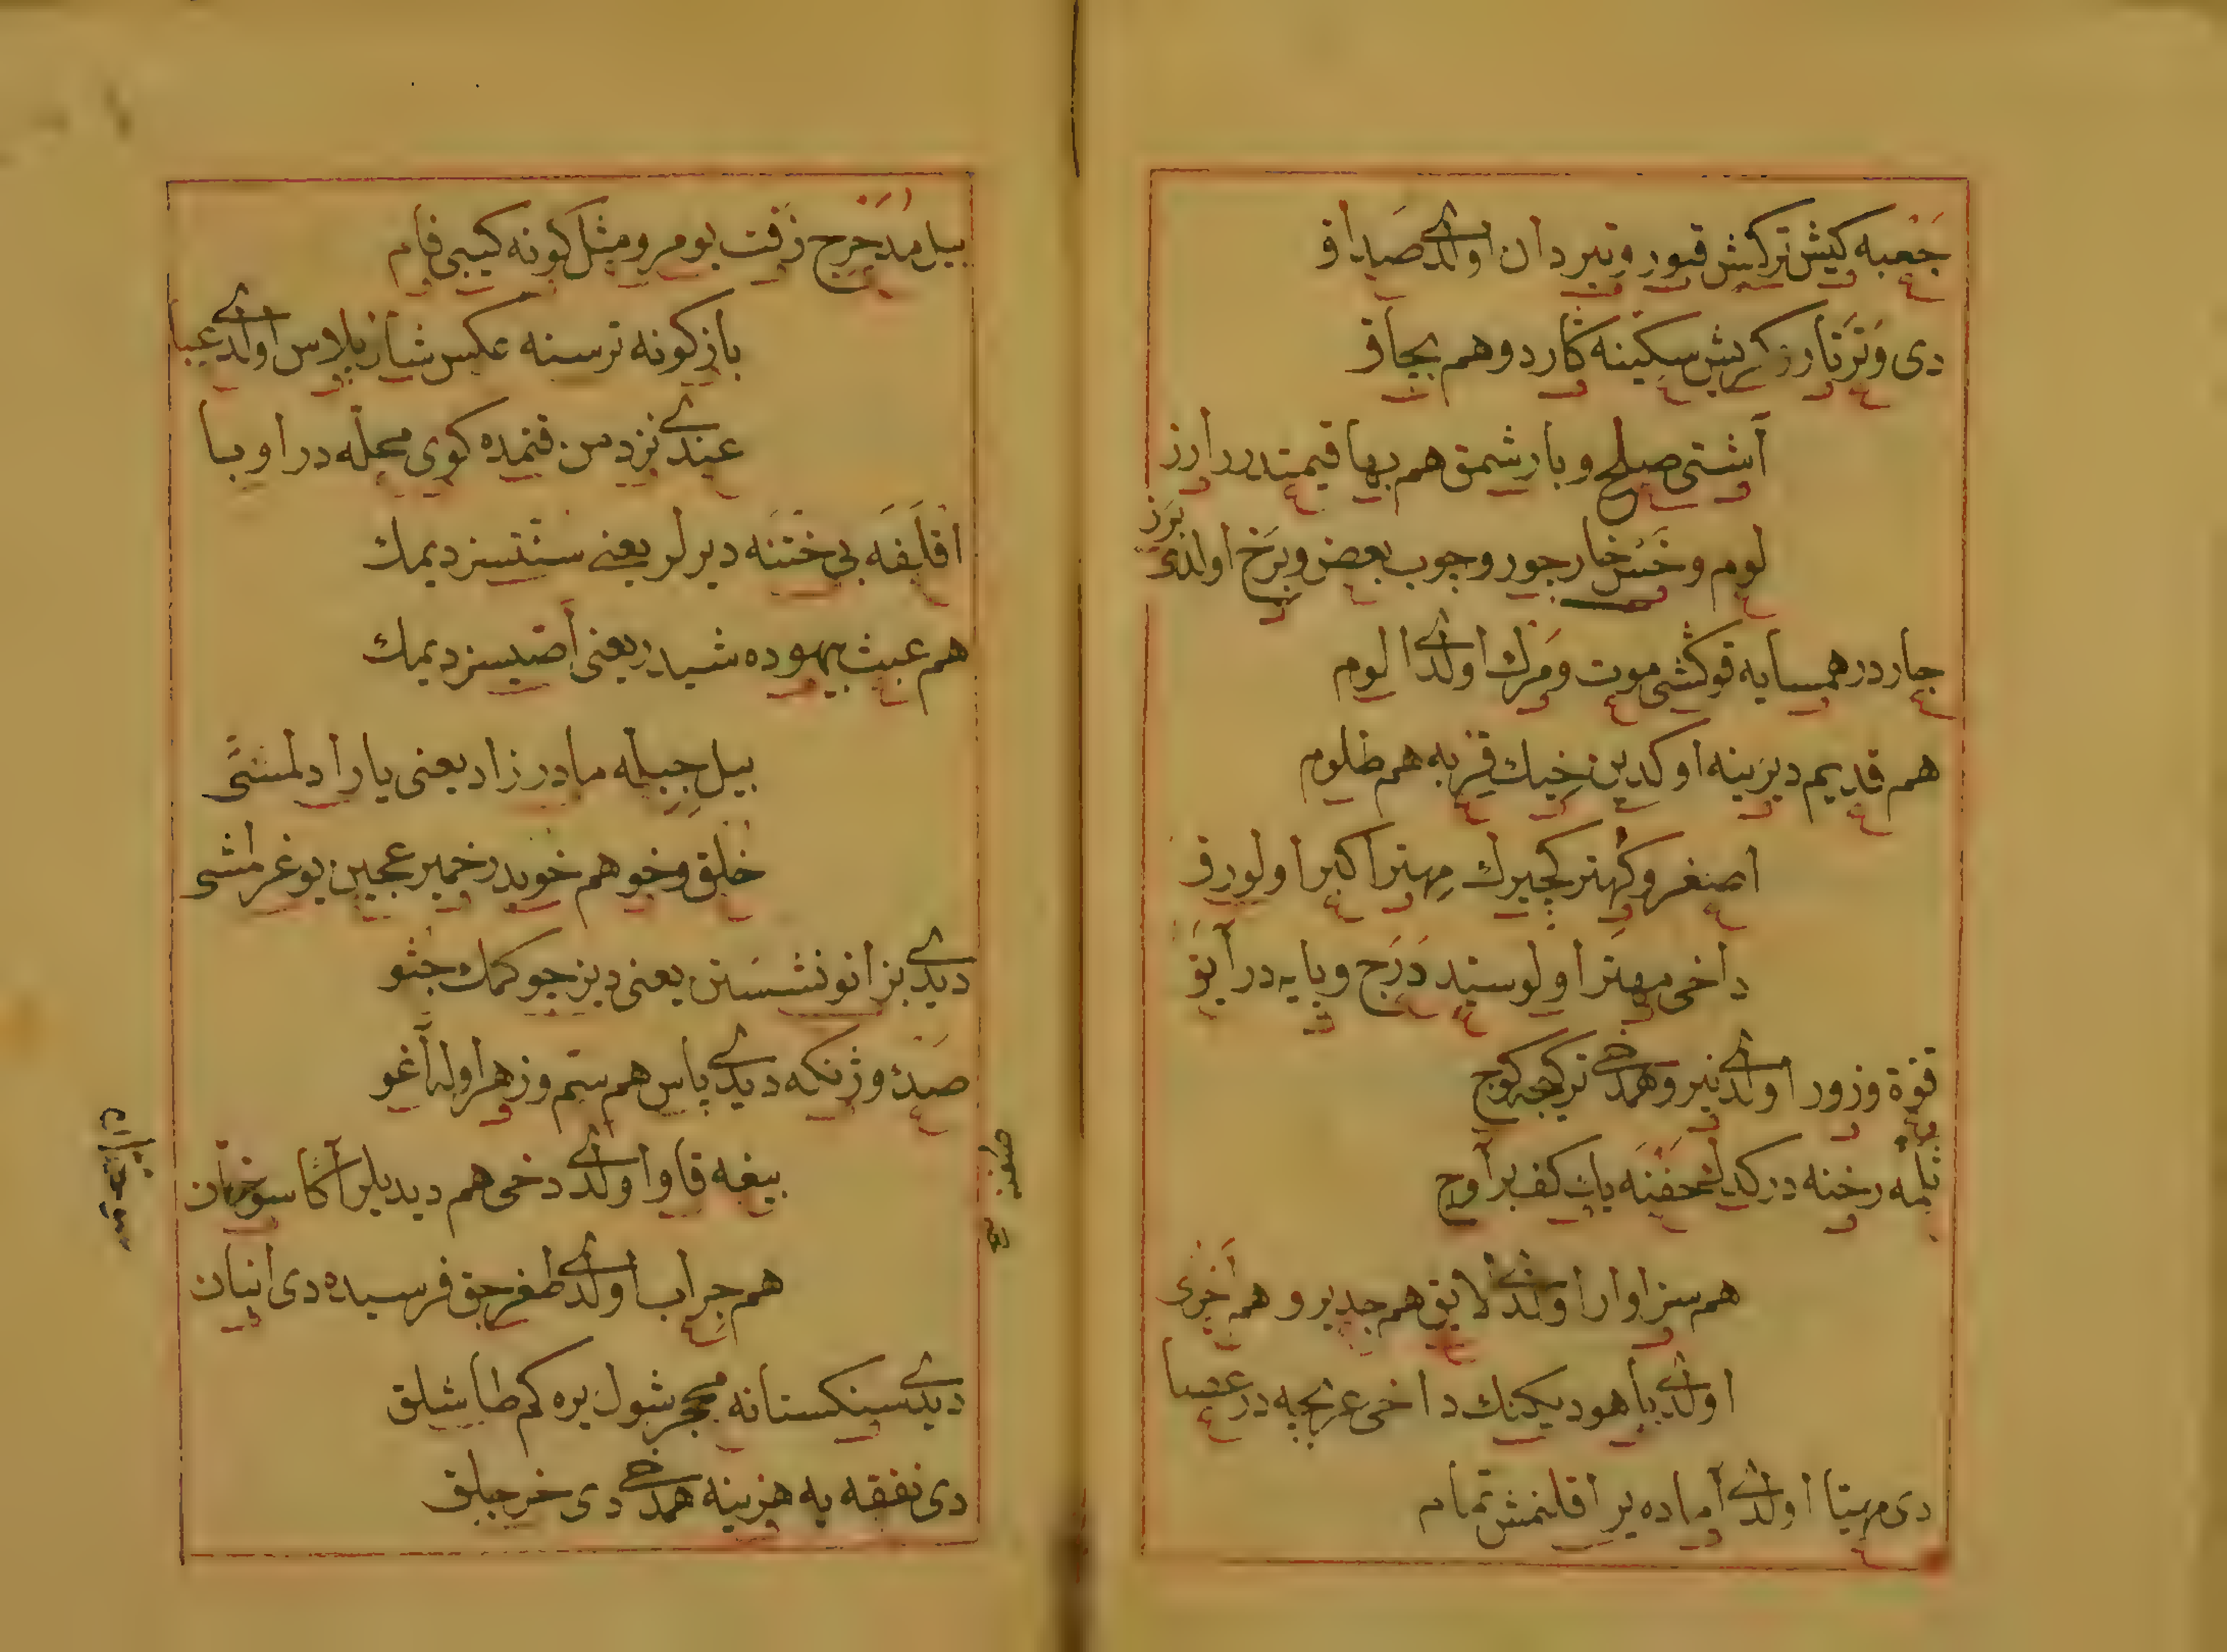 جَعبه كيش تركش قبور و تيردان اولدى صداق
دى وَتَر تار زه كريش سكينه كارد و هم بچاق
آشتى صلح و بارشمق هم بها قيمتدر ارز
لوم و خَس خار جور وجوب بعض و برَخ اولدى
برز
جار در همسايه قوكشى موت و مَرك اولدى الوم
هم قديم ديرينه اوكدين خيك قربه هم طلوم
اصغر و كُهتر كچيرك مهتر اكبر اولورق
داخى مهتر اولو سيد دَرَج و پايه در آيق
قوة و زور اولدى نيرو همدخى تركجه كوج
ثلمه رخنه در كدك حفنَه يك كف بر آوج
هم سزاوار اولدى لايق هم جدير و هم اَخرَى
اولدى باهو ديكنك داخى عربجه در عصا
دى مهيّا اولدى آماده يراقلنمش تمام
بيل مُدَحرَج زفت يومرو مثل كونه كيبى فام
باز كونه ترسنه عكس شاز پلاس اولدى عبا
عندى نزد من قتمده كوى محلّه در اوبا
اقلَفَه بى ختنَه ديرلر يعنى سنّتسز ديمك
هم عبث بيهوده شيدر يعنى اَصّيسز ديمك
بيل جبلّه مادرزاد يعنى يارادلمشى
خلق و خو هم خويدر خمير عجين يوغرلمشى
ديدى بزانو نشستن يعنى ديز چوكمك جثو
صَدَئ و ژنكه ديدى پاس هم ستم و زهر اوله آغو
بيغه قاوا اولدى دخى هم ديديلر آكا سوخان
هم جراب اولدى طغرجق فرسيده دى انبان
ديدى سنكستانه محجر شول يره كم طاشلق
دى نفقه يه هزينه همدخى دى خرجلق